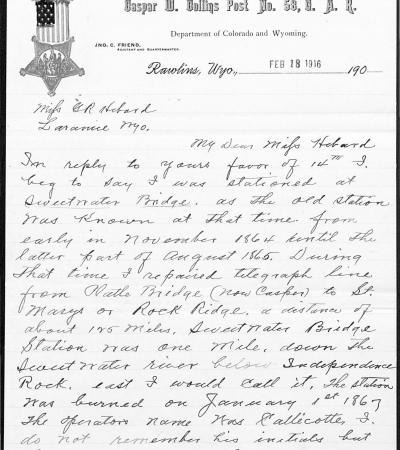 Caspar W. Collins Post No. 58, G. A. R.
Department of Colorado and Wyoming.
JNO. C. FRIEND,
ADJUTANT AND QUARTERMASTER.
Rawlins, Wyo., FEB 18 1916 190
Miss G R Hebard
Laramie Wyo.
My Dear Miss Hebard
In reply to yours favor of 14th I
beg to say I was stationed at
Sweetwater Bridge. as the old station
was known at that time from
early in November 1864 until the
latter part of August 1865. During
that time I repaired telegraph line
from Platte Bridge (now Casper) to St.
Marys or Rock Ridge. a distance of
about 125 Miles, Sweetwater Bridge
Station was one Mile, down the
Sweetwater river below Independence
Rock. east I would call it. The station
was burned on January 1st 1867
The operators name was Callicotte. I
do not remember his initials but